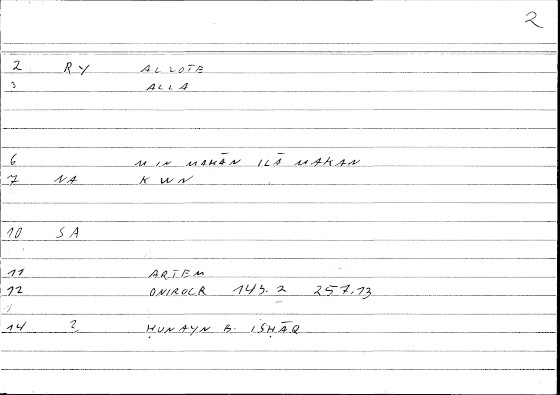 2
2 RY ALLOTE
3 ALLA
6 MIN MAKĀN ILĀ MAKAN
7 NA KWN
10 SA
11 ARTEM
12 ONIROCR 143.2 257.13
14 2 ḤUNAYN B. ISḤĀQ